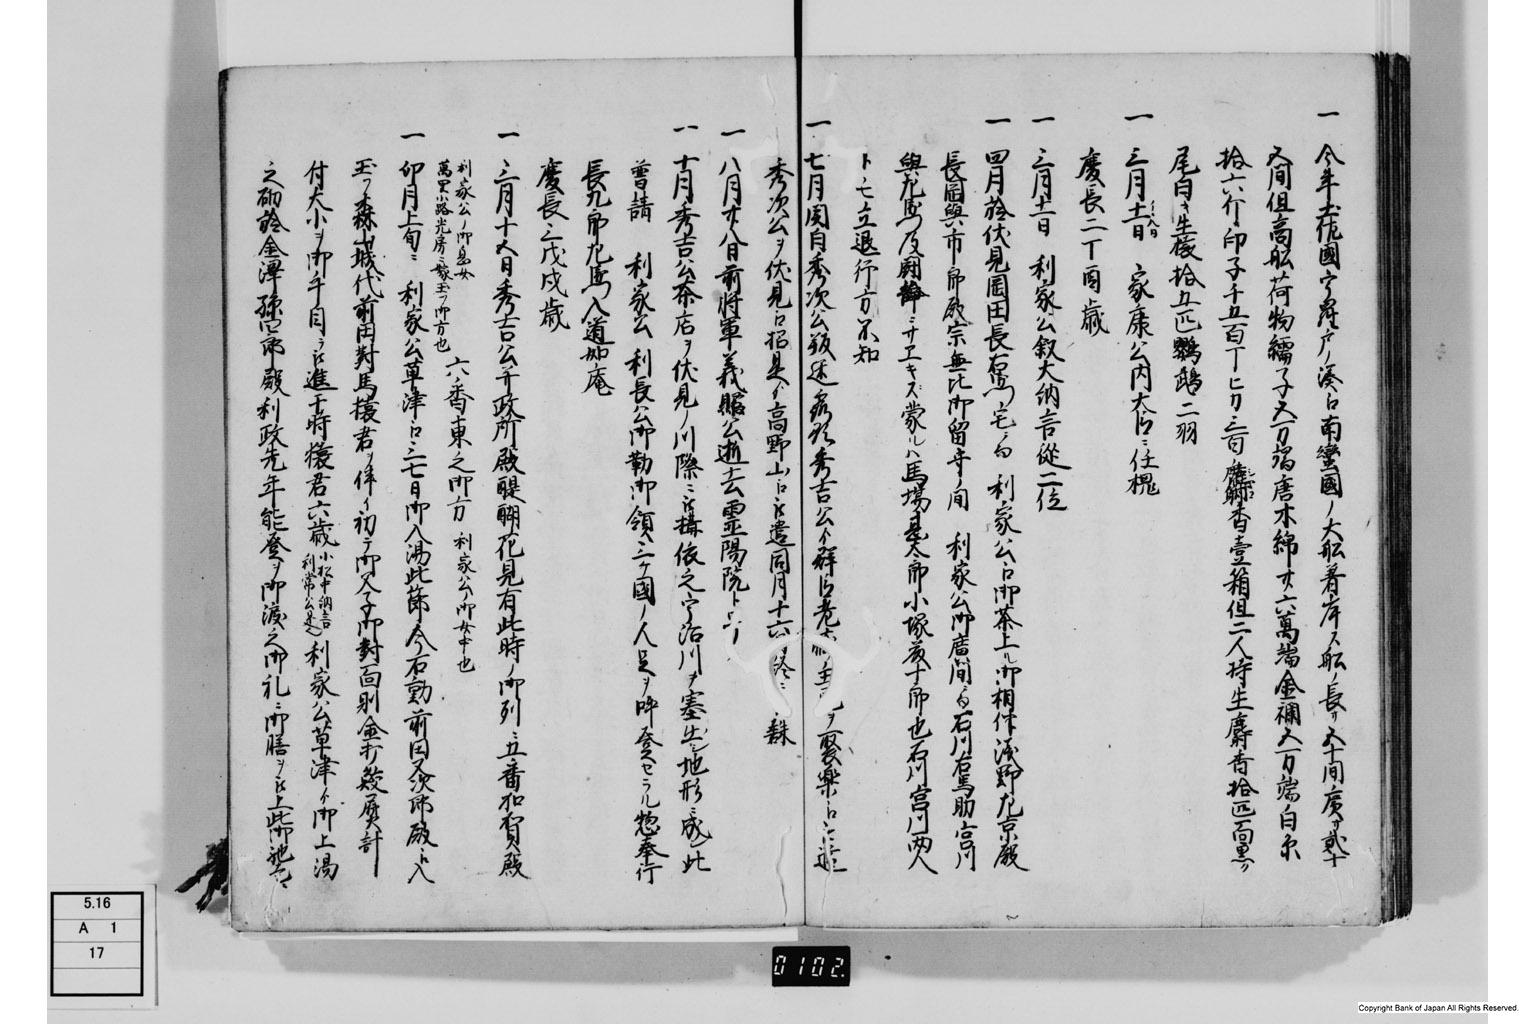 一 今年土佐國宇羅戸ノ湊ニ南蠻國ノ大舩着岸ス舩ノ長サ五十間廣サ貮十
五間但高舩荷物繻子五万端唐木綿廿六萬端金襴五万端白糸
拾六斤印子千五百丁 香壹箱但二人持生麝香拾匹面黒ク
尾白キ生猿拾五匹鸚鵡二羽
一 三月十一日 家康公内大臣ニ任槐
慶長二丁酉歳
一 三月十一日 利家公叙大納言從二位
一 四月於伏見岡田長 宅 利家公ニ御茶上ル御相伴浅野左京殿
長岡與市郎殿宗無比御留守ノ間 利家公御廣間ニ石川右馬助宮川
與左馬 及 ミサエキズ蒙ルハ馬場 太郎小塚 十郎也石川宮川両人
トモ立退行方不知
一 七月関白秀次公 秀吉公 聚樂ニ
秀次公ヲ伏見ニ招是ヨリ高野山ニ被遣同月十六日終ニ 誅
一 八月廿八日前將軍義昭公逝去霊陽院ト云
一 十月秀吉公茶店ヲ伏見ノ川際ニ被搆依之宇治川ヲ塞出シ地形ニ成此
普請 利家公 利長公御勤御領三ケ國ノ人足ヲ呼登セラル惣奉行
長九郎左馬入道如庵
慶長三戊戌歳
一 三月十五日秀吉公并政所殿醍醐花見有此時ノ御列ニ五番加賀殿
利家公ノ御息女
萬里小路光房ニ嫁玉フ御方也
六番東之御方 利家公ノ御女中也
一 卯月上旬ニ 利家公草津ニ三七日御入湯此節今石動前田又次郎殿ニ入
玉フ森山城代前田對馬猿君ヲ伴イ初テ御父子御對面則金打鮫
付大小ヲ御手自ラ被進于時猿君六歳
小松中納言
利常公是也
利家公草津ヨリ御上湯
之砌於金澤孫四郎殿利政先年能登ヲ御渡之御礼ニ御膳ヲ被上此御
5.16
A 1
17
0102
Copyright Bank of Japan All Rights Reserved.